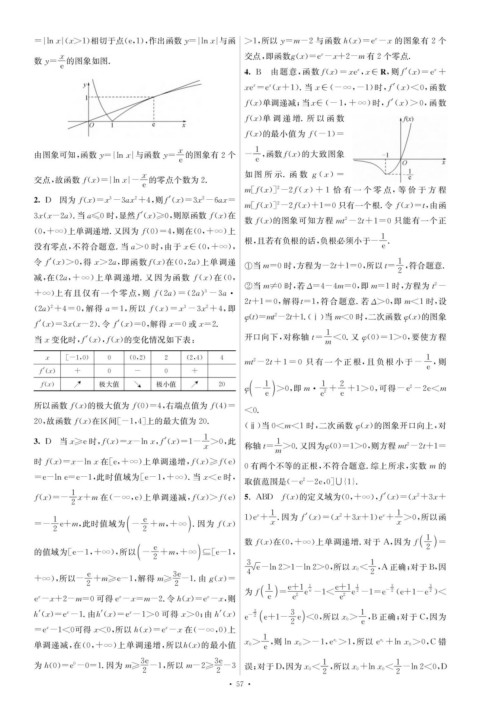 =|ln x|(x>1)相切于点(e,1),作出函数 y=|ln x|与函
数 y=x/e的图象如图.
y
1
O
1
e
x
由图象可知,函数 y=|ln x|与函数 y=x/e的图象有 2 个
交点,故函数 f(x)=|ln x|-x/e的零点个数为 2.
2. D 因为 f(x)=x³-3ax²+4,则 f′(x)=3x²-6ax=
3x(x-2a).当 a≤0 时,显然f′(x)≥0,则原函数 f(x)在
(0,+∞)上单调递增.又因为 f(0)=4,则在(0,+∞)上
没有零点,不符合题意.当 a>0 时,由于 x∈(0,+∞),
令 f′(x)>0,得 x>2a,即函数f(x)在(0,2a)上单调递
减,在(2a,+∞)上单调递增.又因为函数 f(x)在(0,
+∞)上有且仅有一个零点,则 f(2a)=(2a)³-3a·
(2a)²+4=0,解得 a=1,所以 f(x)=x³-3x²+4,即
f′(x)=3x(x-2).令 f′(x)=0,解得 x=0 或 x=2.
当 x 变化时,f′(x),f(x)的变化情况如下表:
x [-1,0) 0 (0,2) 2 (2,4) 4
f′(x) + 0 - 0 +
f(x) ↗ 极大值 ↘ 极小值 ↗ 20
所以函数 f(x)的极大值为 f(0)=4,右端点值为 f(4)=
20,故函数 f(x)在区间[-1,4]上的最大值为 20.
3. D 当 x≥e 时,f(x)=x-ln x,f′(x)=1-1/x>0,此
时 f(x)=x-ln x 在[e,+∞)上单调递增,f(x)≥f(e)
=e-ln e=e-1,此时值域为[e-1,+∞).当 x<e 时,
f(x)=-1/2x+m 在(-∞,e)上单调递减,f(x)>f(e)
=-1/2e+m,此时值域为(-e/2+m,+∞).因为 f(x)
的值域为[e-1,+∞),所以(-e/2+m,+∞)⊆[e-1,
+∞),所以-e/2+m≥e-1,解得 m≥3e/2-1.由 g(x)=
eˣ-x+2-m=0 可得 eˣ-x=m-2.令 h(x)=eˣ-x,则
h′(x)=eˣ-1.由h′(x)=eˣ-1>0 可得 x>0;由 h′(x)
=eˣ-1<0可得 x<0,所以 h(x)=eˣ-x 在(-∞,0)上
单调递减,在(0,+∞)上单调递增,所以h(x)的最小值
为 h(0)=e⁰-0=1.因为 m≥3e/2-1,所以 m-2≥3e/2-3
>1,所以 y=m-2 与函数 h(x)=eˣ-x 的图象有 2 个
交点,即函数g(x)=eˣ-x+2-m 有 2 个零点.
4. B 由题意,函数 f(x)=xeˣ,x∈R,则 f′(x)=eˣ+
xeˣ=eˣ(x+1).当 x∈(-∞,-1)时,f′(x)<0,函数
f(x)单调递减;当x∈(-1,+∞)时,f′(x)>0,函数
f(x)单调递增.所以函数
f(x)的最小值为 f(-1)=
-1/e,函数f(x)的大致图象
如图所示.函数 g(x)=
f(x)
-1
O
x
-1/e
m[f(x)]²-2f(x)+1 恰有一个零点,等价于方程
m[f(x)]²-2f(x)+1=0 只有一个根.令 f(x)=t,由函
数 f(x)的图象可知方程 mt²-2t+1=0 只能有一个正
根,且若有负根的话,负根必须小于-1/e.
①当 m=0 时,方程为-2t+1=0,所以 t=1/2,符合题意.
②当m≠0 时,若 Δ=4-4m=0,即 m=1 时,方程为 t²-
2t+1=0,解得t=1,符合题意.若 Δ>0,即 m<1 时,设
φ(t)=mt²-2t+1.(ⅰ)当 m<0 时,二次函数 φ(x)的图象
开口向下,对称轴 t=1/m<0.又 φ(0)=1>0,要使方程
mt²-2t+1=0 只有一个正根,且负根小于-1/e,则
φ(-1/e)>0,即 m·1/e²+2/e+1>0,可得-e²-2e<m
<0.
(ⅱ)当 0<m<1 时,二次函数 φ(x)的图象开口向上,对
称轴 t=1/m>0.又因为φ(0)=1>0,则方程 mt²-2t+1=
0 有两个不等的正根,不符合题意.综上所求,实数 m 的
取值范围是(-e²-2e,0]∪{1}.
5. ABD f(x)的定义域为(0,+∞),f′(x)=(x²+3x+
1)eˣ+1/x.因为 f′(x)=(x²+3x+1)eˣ+1/x>0,所以函
数 f(x)在(0,+∞)上单调递增.对于 A,因为 f(1/2)=
3/4√e-ln 2>1-ln 2>0,所以 x₀<1/2,A 正确;对于 B,因
为 f(1/e)=(e+1)/e² e^(1/e)-1<(e+1)/e² e^(1/2)-1=e^(-3/2)(e+1-e^(3/2))<
e^(-3/2)(e+1-3/2e)<0,所以 x₀>1/e,B 正确;对于 C,因为
x₀>1/e,则 ln x₀>-1,e^(x₀)>1,所以 e^(x₀)+ln x₀>0,C 错
误;对于 D,因为 x₀<1/2,所以 x₀+ln x₀<1/2-ln 2<0,D
· 57 ·